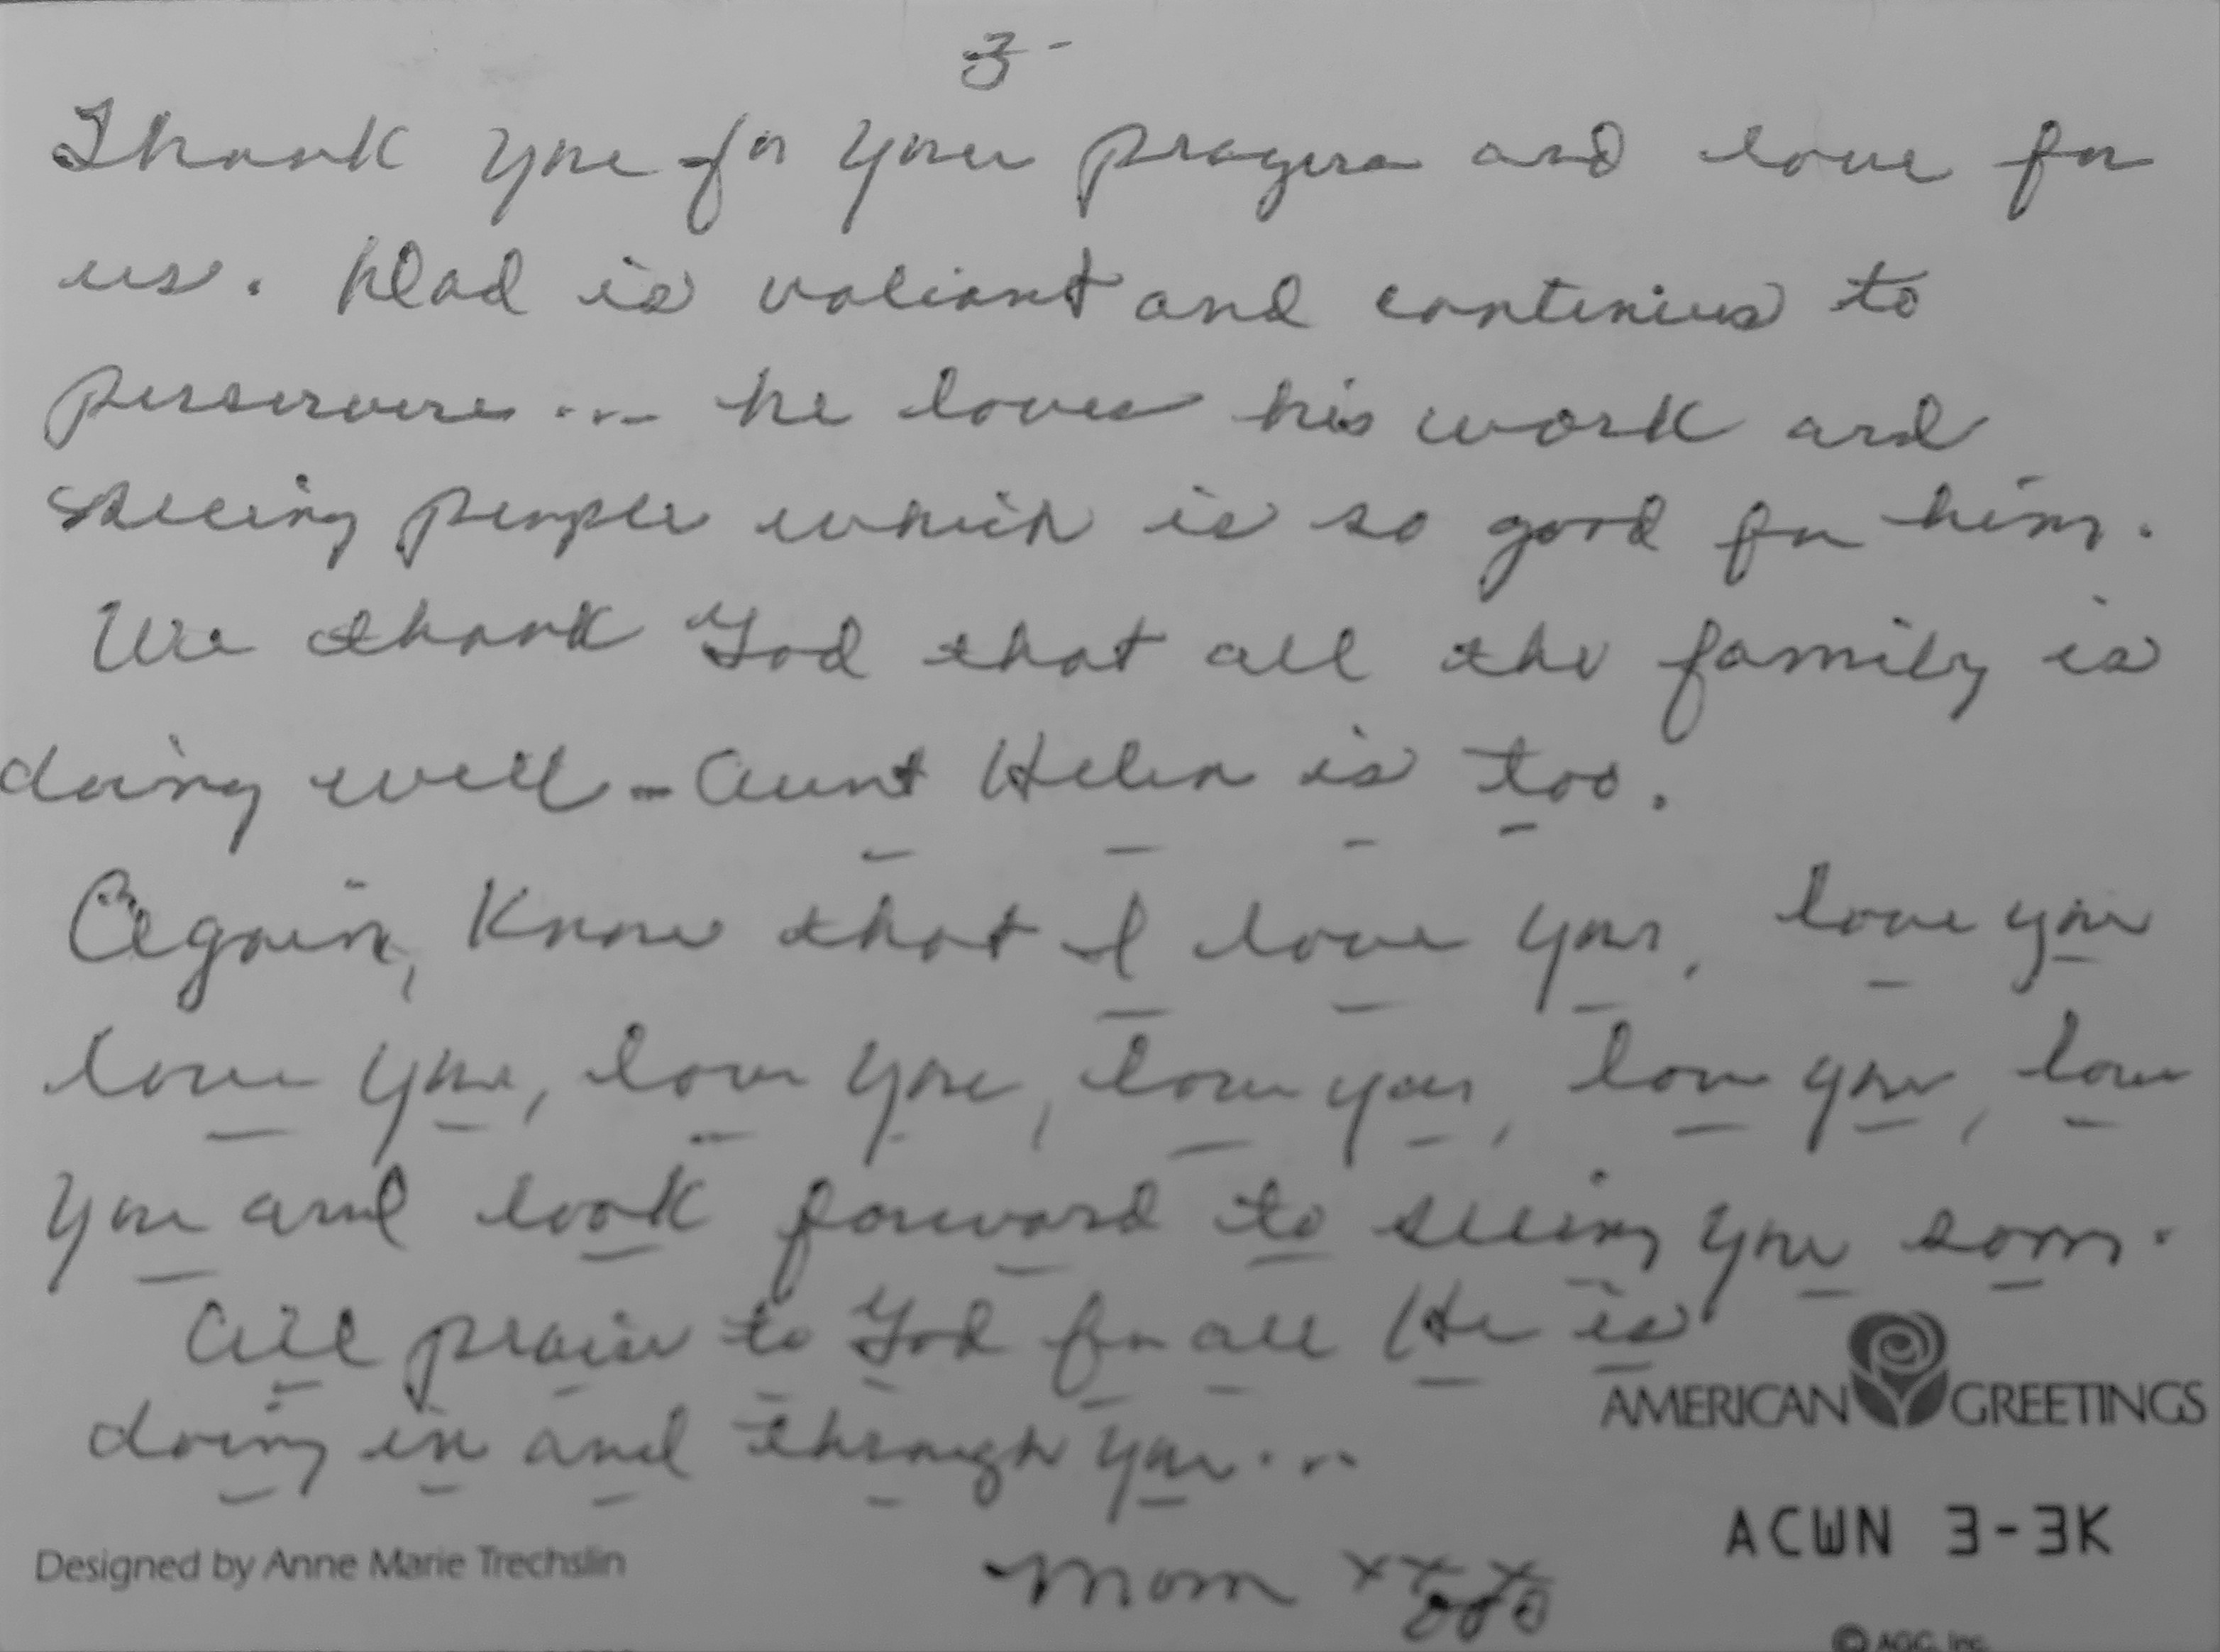 3-
Thank you for your prayers and love for
us. Dad is valiant and continues to
perservere... he loves his work and
seeing people which is so good for him.
We thank God that all the family is
doing well - Aunt Helen is too.
Again, Know that I love you, love you
love you, love you, love you, love you, love
you and look forward to seeing you soon.
All praise to God for all He is
AMERICAN GREETINGS
doing in and through you...
ACWN 3-3K
Designed by Anne Marie Trechslin
Mom xxxx ooo
© AGC, Inc.